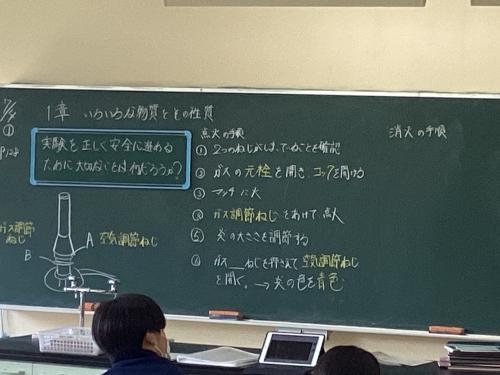 7/5
1章 いろいろな物質とその性質
①
P128
実験を正しく安全に進める
ために大切なことは何だろうか?
点火の手順
① 2つのねじがしまっていることを確認
② ガスの元栓を開き、コックを開ける
③ マッチに火
④ ガス調節ねじをあけて点火
⑤ 炎の大きさを調節する
⑥ ガス__ねじを押さえて空気調節ねじ
を開く。→炎の色を青色
消火の手順
ガス調節
ねじ
B
A
空気調節ねじ